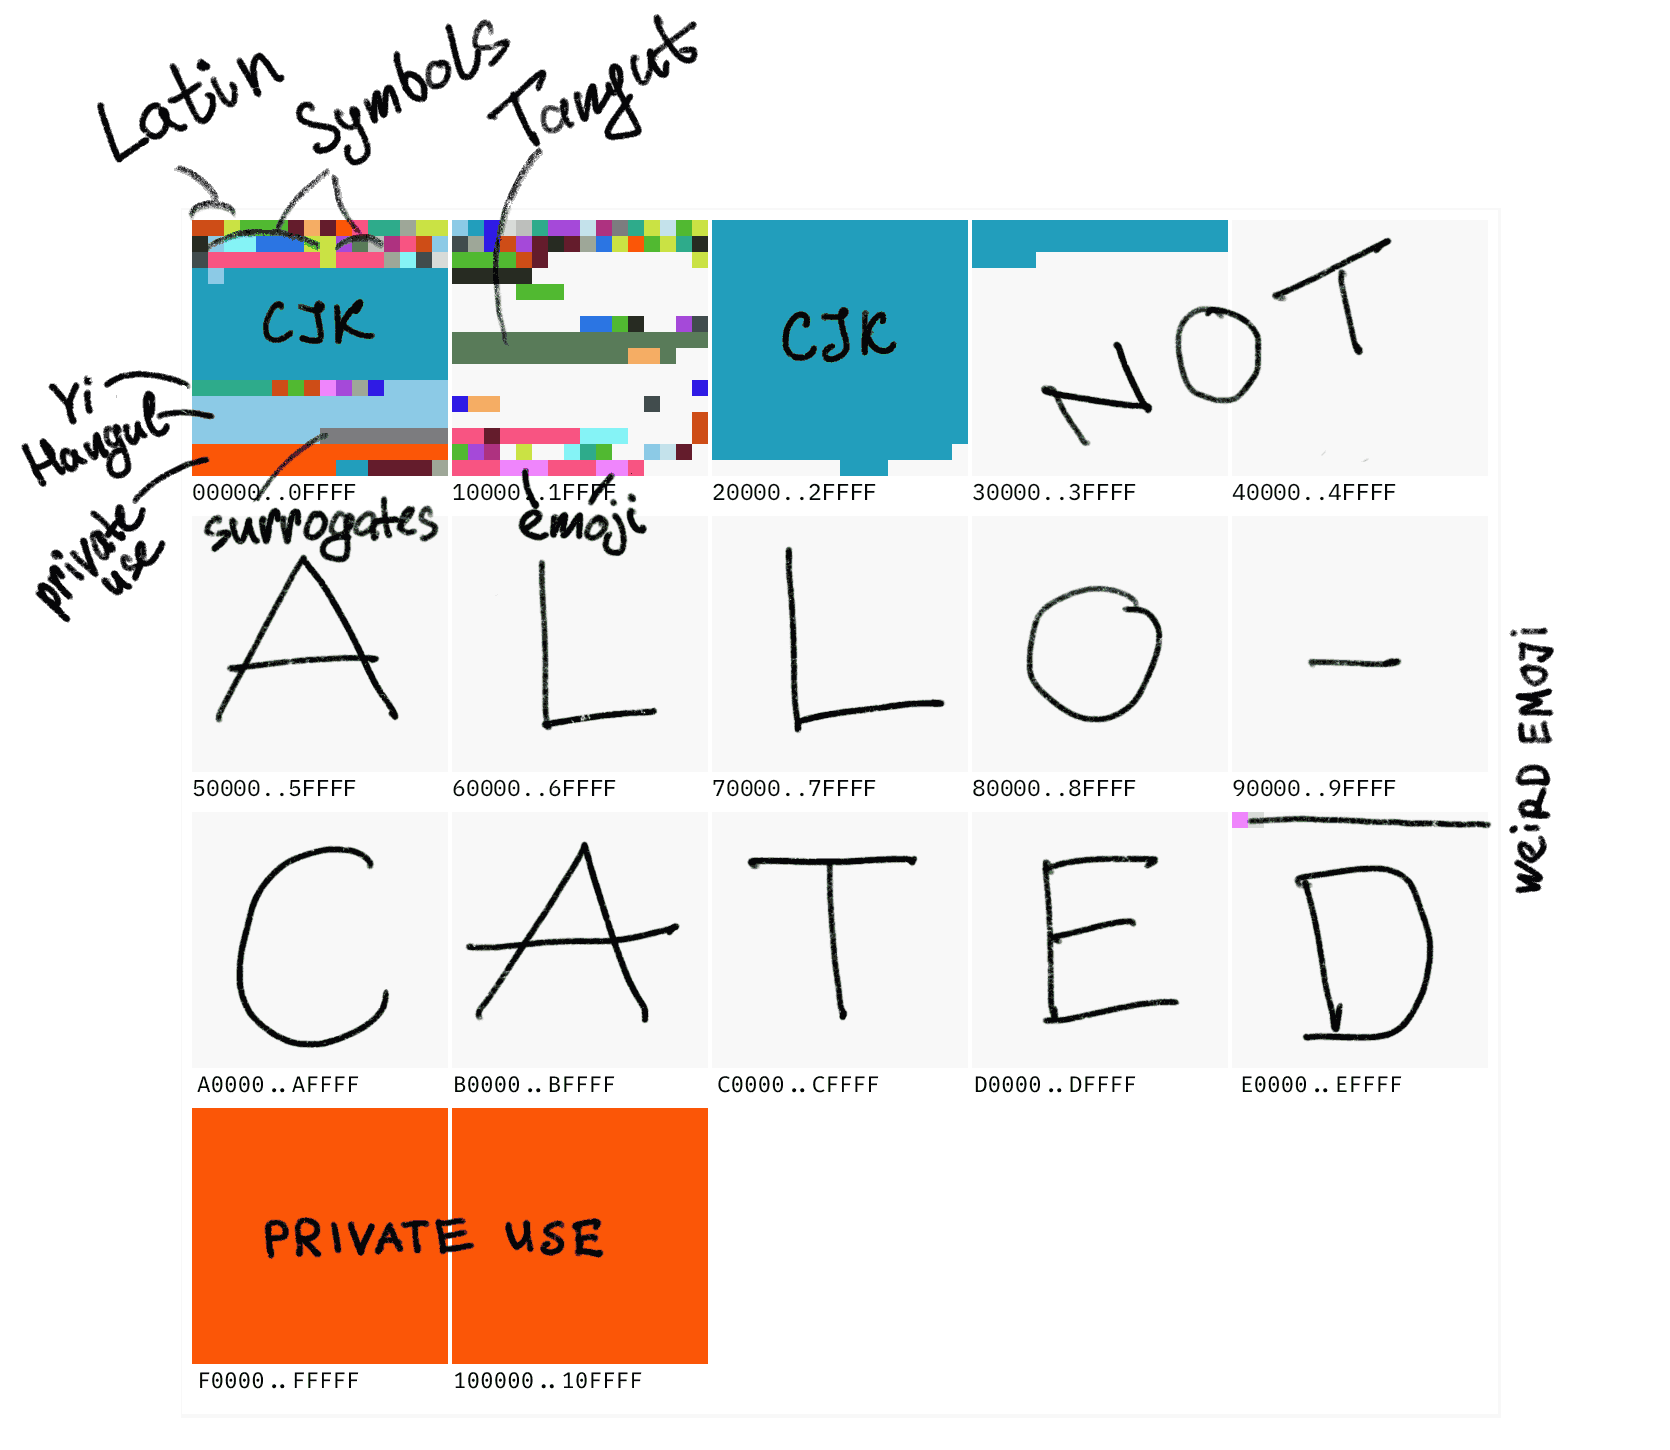 Latin
Symbols
Tangut
CJK
CJK
NOT
Yi
Hangul
private
use
surrogates
emoji
00000..0FFFF
10000..1FFFF
20000..2FFFF
30000..3FFFF
40000..4FFFF
ALLO-
50000..5FFFF
60000..6FFFF
70000..7FFFF
80000..8FFFF
90000..9FFFF
WEIRD EMOJI
CATED
A0000..AFFFF
B0000..BFFFF
C0000..CFFFF
D0000..DFFFF
E0000..EFFFF
PRIVATE USE
F0000..FFFFF
100000..10FFFF